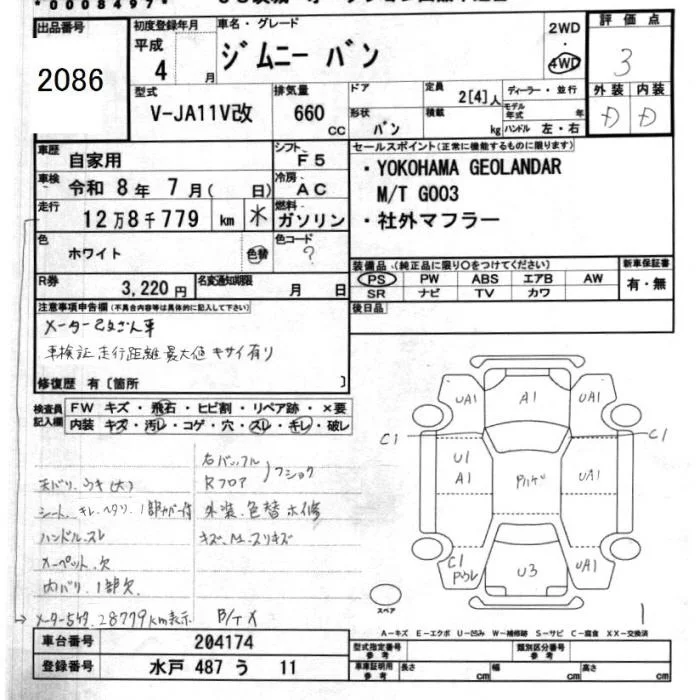 *0008497*
出品番号
2086
初度登録年月
平成
4 月
車名・グレード
ジムニー バン
2WD
・
4WD
評価点
3
外装 内装
D D
型式
V-JA11V改
排気量
660
CC
ドア
形状
バン
定員
2[4]人
積載
kg
ディーラー・並行
モデル年式 年
ハンドル 左・右
車歴
自家用
シフト
F5
車検
令和 8年 7月( 日)
冷房
AC
走行
12万8千779 km
燃料
ガソリン
色
ホワイト
色替
色コード
?
R券
3,220円
名変通知期限
月 日
セールスポイント(正常に機能するものに限ります)
・YOKOHAMA GEOLANDAR
M/T G003
・社外マフラー
装備品・(純正品に限り○をつけてください)
PS PW ABS エアB AW
SR ナビ TV カワ
新車保証書
有・無
後日品
注意事項申告欄(不具合内容等は具体的に記入して下さい)
メーター改ざん車
車検証走行距離最大値キサイ有り
修復歴 有〔箇所 〕
検査員記入欄
FW キズ・飛石・ヒビ割・リペア跡・×要
内装 キズ・汚レ・コゲ・穴・スレ・キレ・破レ
天バリ、ウキ(大)
シート、キレ、ヘタリ、1部
ハンドル、スレ
カーペット、欠
内バリ、1部欠
メーター5ケタ、28779km表示
Rフロア
フショク
外装、色替ホ修
B/T X
UA1 A1 UA1
C1 C1
U1
A1
UA1
C1
UA1
U3
スペア
1
A－キズ E－エクボ U－凹み W－補修跡 S－サビ C－腐食 XX－交換済
車台番号
204174
登録番号
水戸 487 う 11
型式指定番号
参考
類別区分番号
参考
車庫証明用
参考
長さ cm 幅 cm 高さ cm